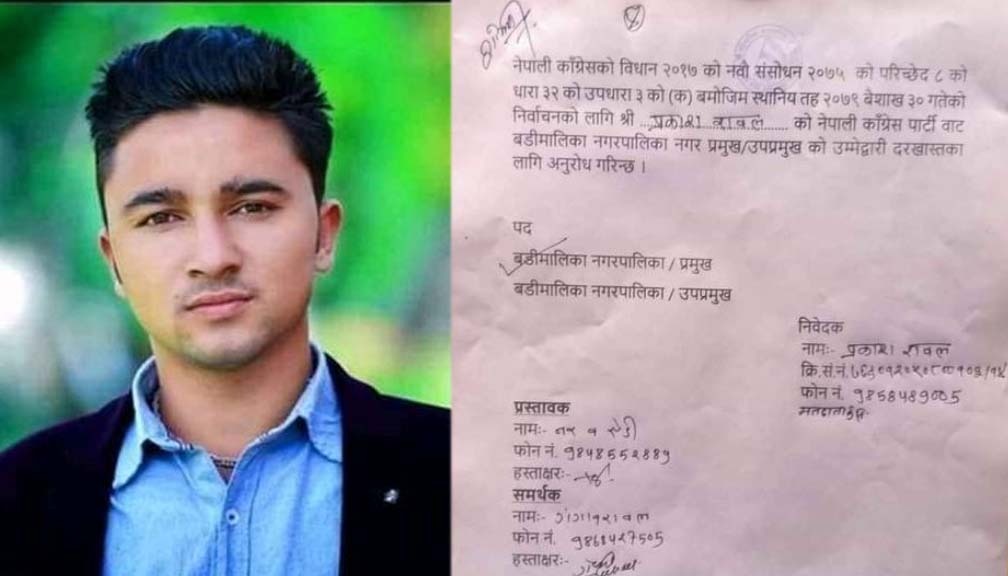 नेपाली काँग्रेसको विधान २०१७ को नवौं संसोधन २०७५ को परिच्छेद ८ को
धारा ३२ को उपधारा ३ को (क) बमोजिम स्थानिय तह २०७९ बैशाख ३० गतेको
निर्वाचनको लागि श्री ....प्रकाश रावल...... को नेपाली काँग्रेस पार्टी वाट
बडीमालिका नगरपालिका नगर प्रमुख/उपप्रमुख को उम्मेद्वारी दरखास्तका
लागि अनुरोध गरिन्छ ।
पद
बडीमालिका नगरपालिका / प्रमुख
बडीमालिका नगरपालिका / उपप्रमुख
निवेदक
नामः- प्रकाश रावल
क्रि.सं.नं.
फोन नं. 9858489005
प्रस्तावक
नामः-
फोन नं. 9848552889
हस्ताक्षरः-
समर्थक
नामः-
फोन नं.
हस्ताक्षरः-